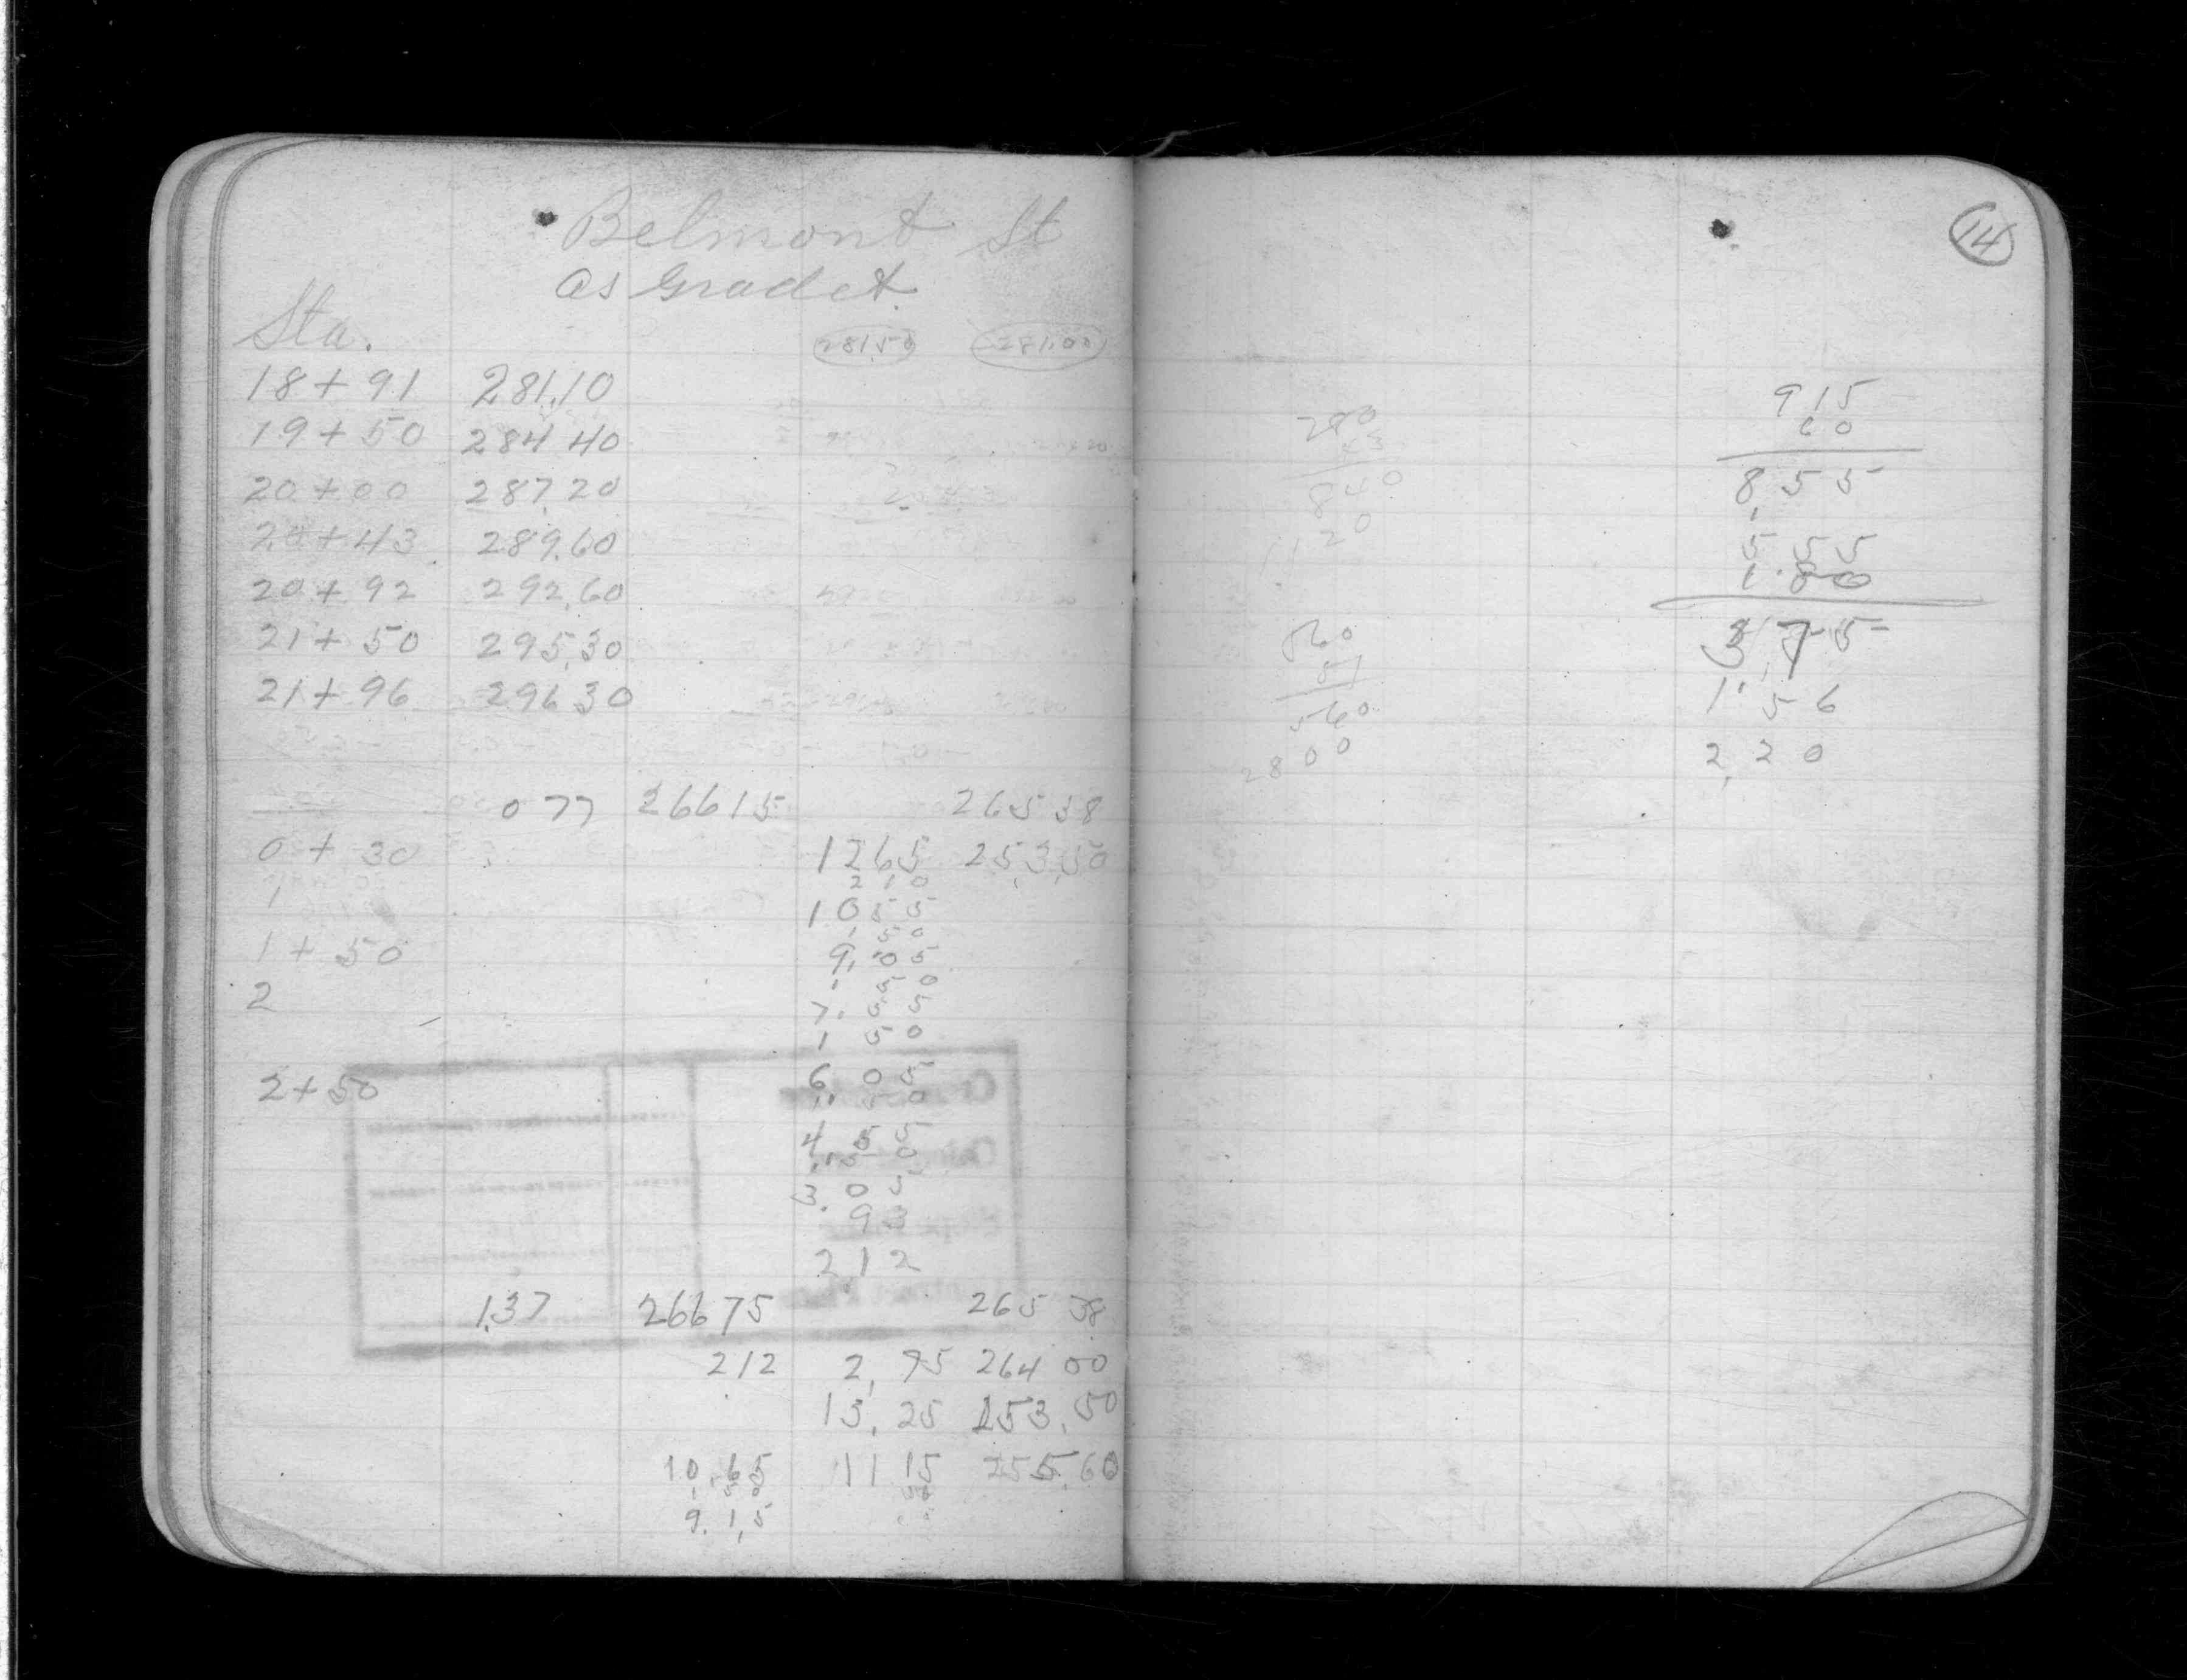 Belmont St
as Graded
Sta.
281.50 281.00
18+91 281.10
19+50 284 40
20+00 287.20
20+43 289.60
20+92 292.60
21+50 295.30
21+96 296 30
0 77 266 15 265 38
0+30 12 65 253.50
2 10
1 10 55
1 50
1+50 9.05
1 50
2 7.55
1 50
2+50 6 05
1.50
4 55
1.50
3.05
93
2 12
1.37 266 75 265 38
2 12 2,75 264 00
13.25 253.50
10.65 11 15 255.60
1.50 50
9.15
14
280
43
840
1120
560
51
560
2800
915
60
8,55
5 55
1.80
3,75
1.56
2,20